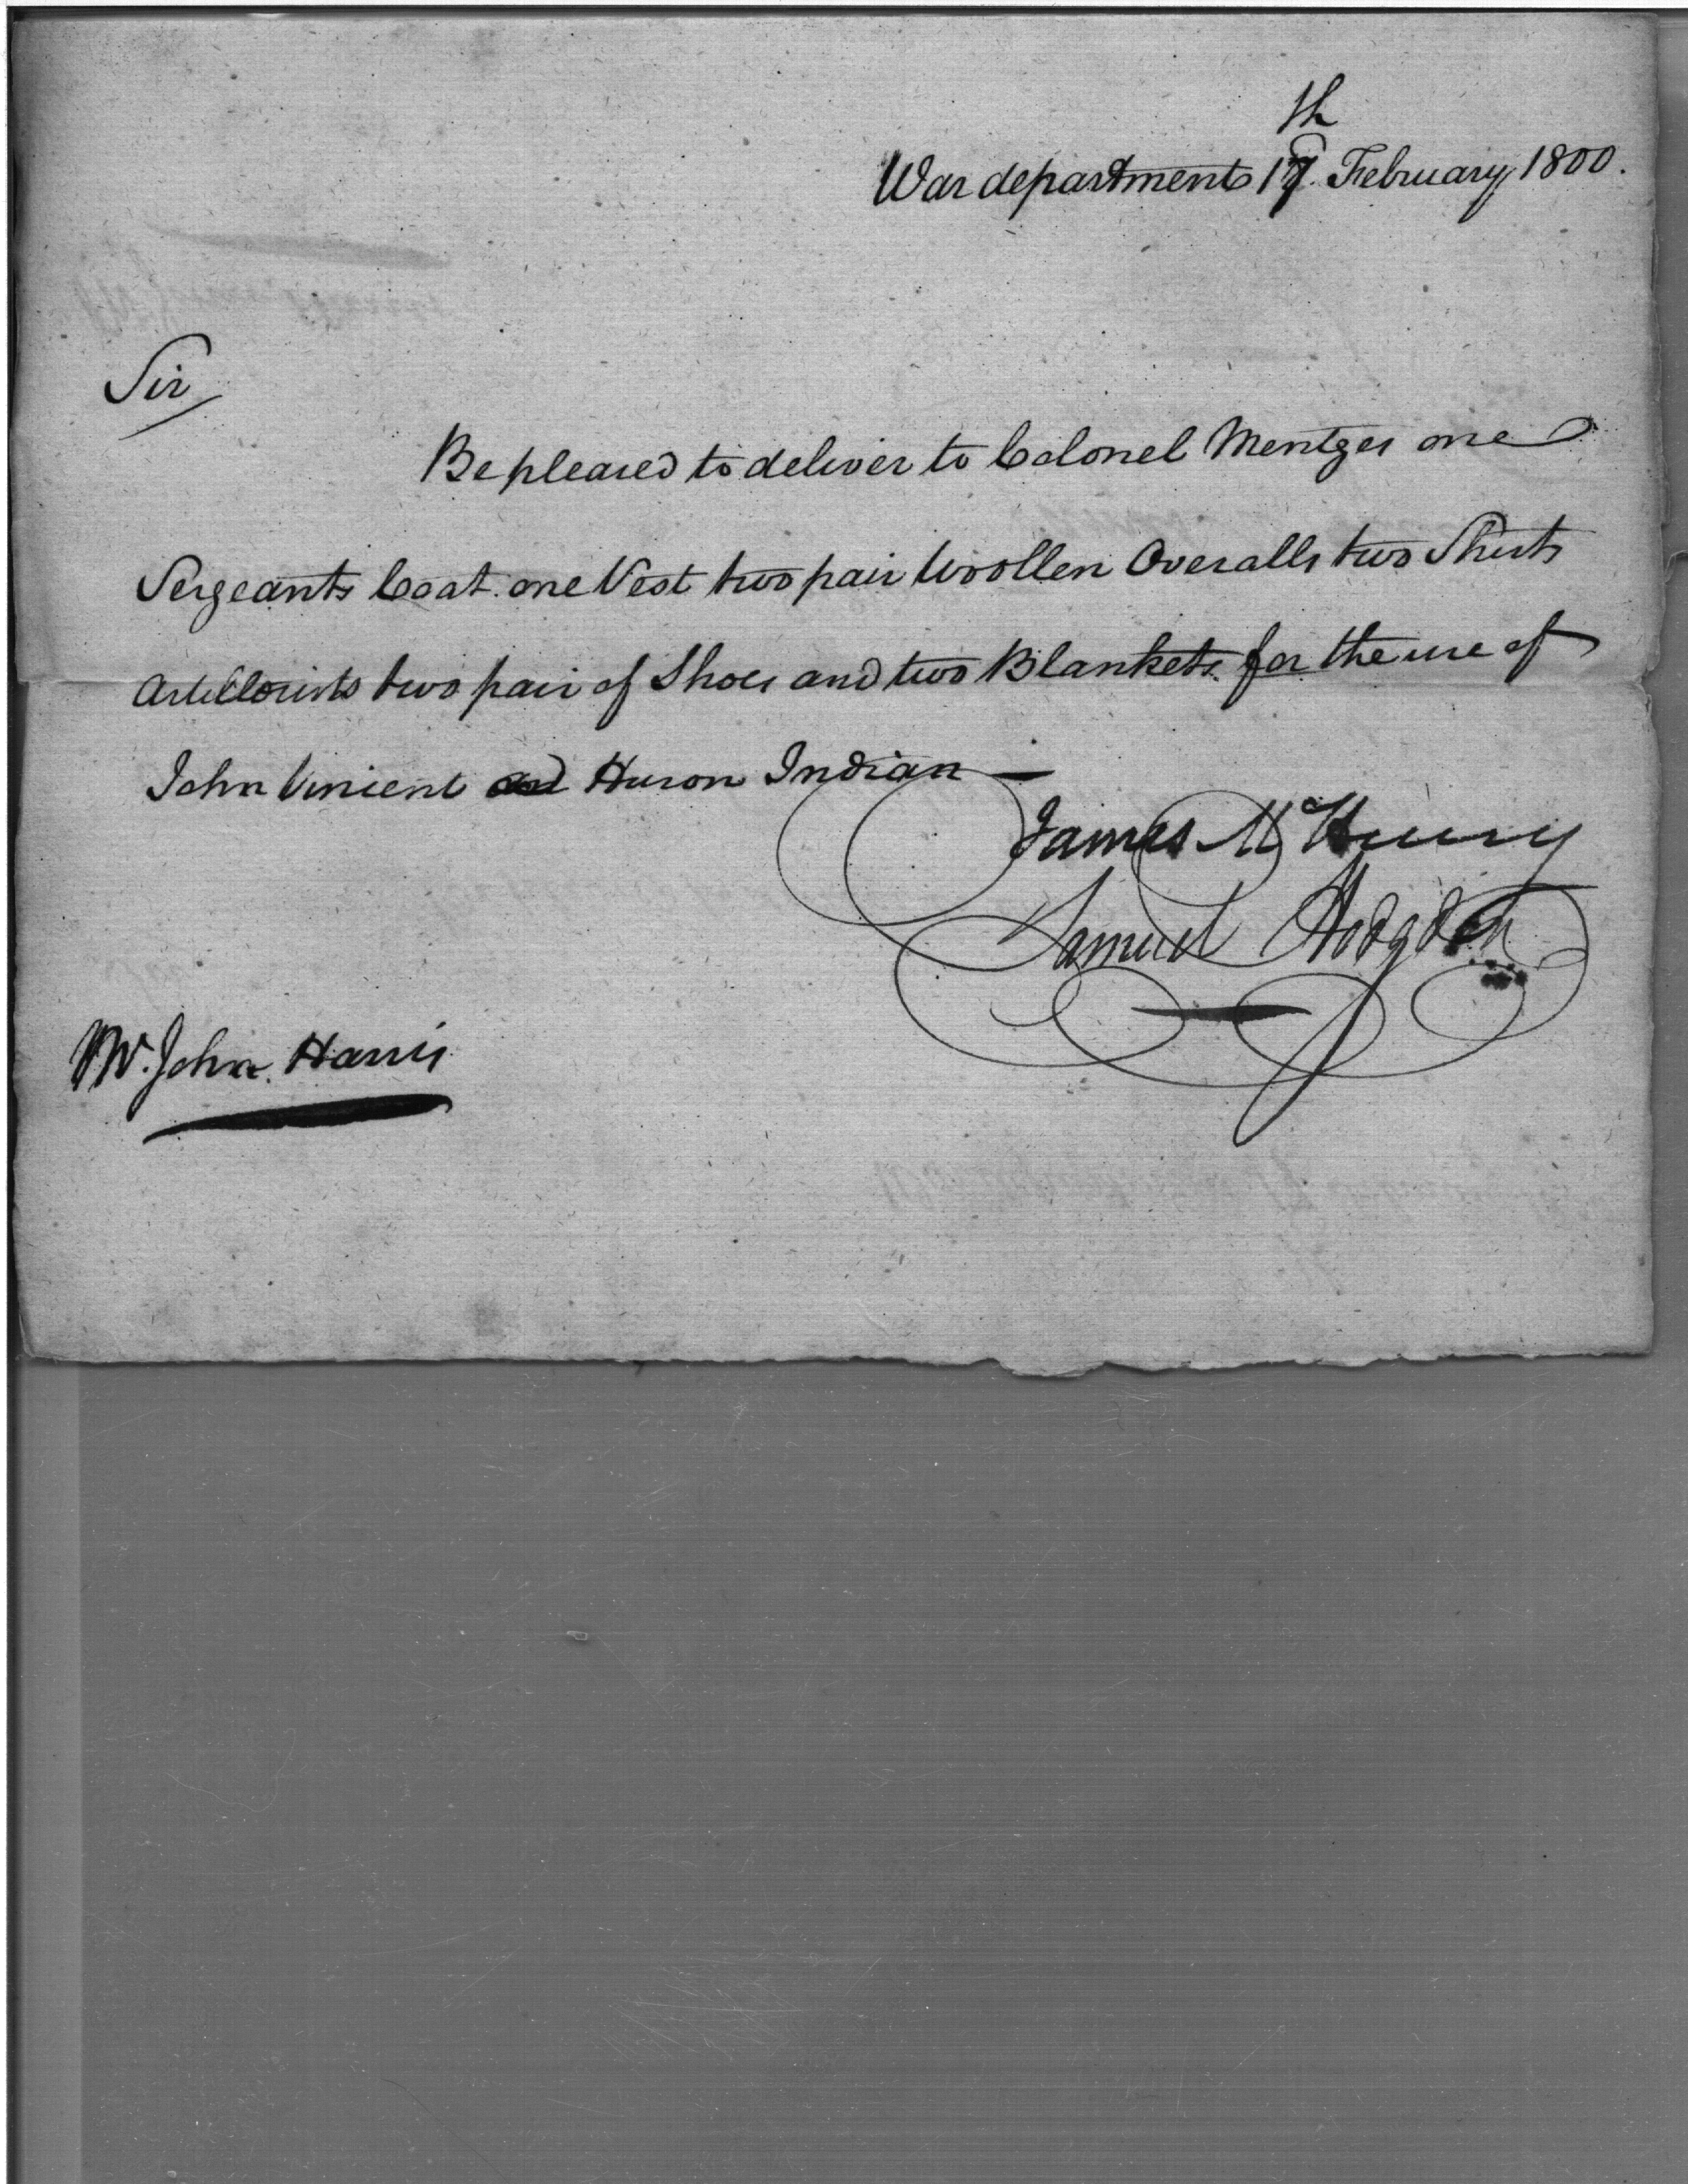 War department 17th February 1800.
Sir
Be pleased to deliver to Colonel Mentges one
Sergeants Coat. one Vest two pair Woollen Overalls two Shirts
Artillerists two pair of Shoes and two Blankets. for the use of
John Vincent a Huron Indian —
James McHenry
Samuel Hodgdon
Mr. John Harris